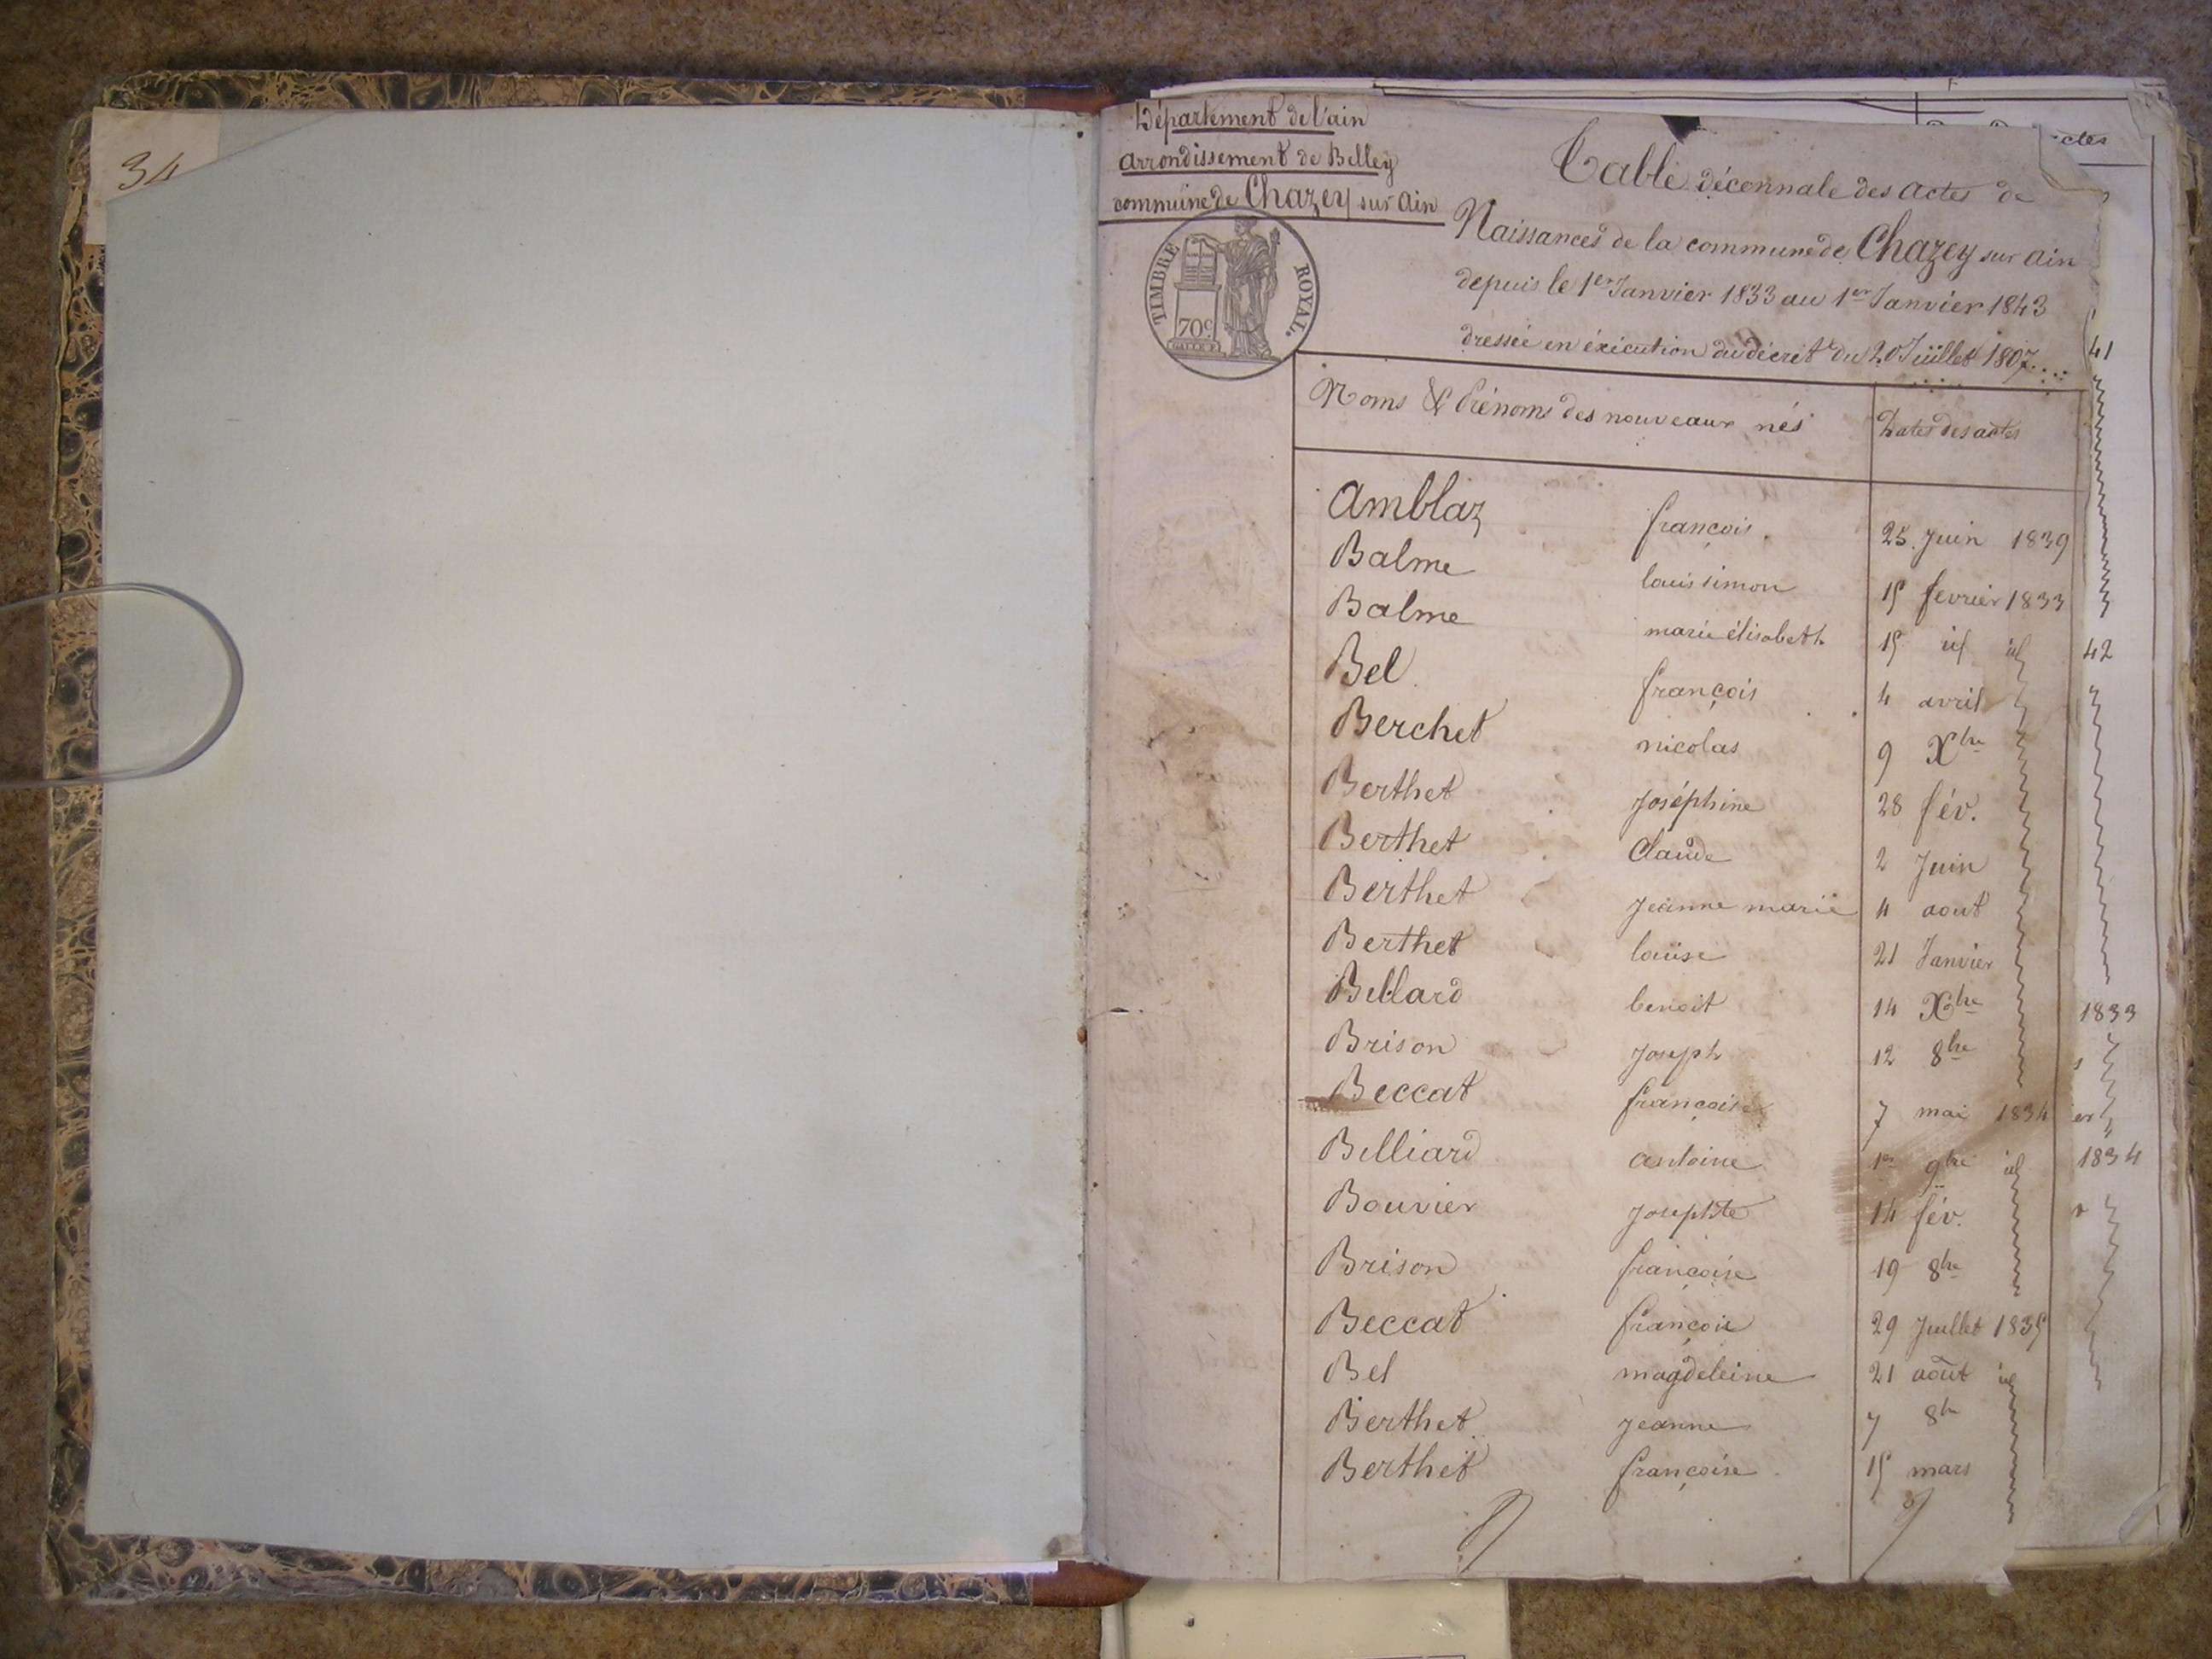 34
Département de l'ain
arrondissement de Belley
commune de Chazey sur Ain
TIMBRE ROYAL.
70c
Table décennale des actes de
Naissances de la commune de Chazey sur ain
depuis le 1er Janvier 1833 au 1er Janvier 1843
dressée en éxécution du décrèt du 20 Juillet 1807....
Noms & Prénoms des nouveaux nés Dates des actes
Amblaz françois. 25. Juin 1839
Balme louis simon 15 fevrier 1833
Balme marie élisabeth 15 id id
Bel françois 4 avril
Berchet nicolas 9 Xbre
Berthet Joséphine 28 fév.
Berthet Claude 2 Juin
Berthet Jeanne marie 4 aout
Berthet louise 21 Janvier
Billard benoit 14 Xbre
Brison Joseph 12 8bre
Beccat françoise 7 mai 1834
Billiard antoine 1er 9bre id
Bouvier Josephte 14 fév.
Brison françoise 19 8bre
Beccat 29 Juillet 1835
Bel magdeleine 21 août id
Berthet Jeanne 7 8bre
Berthet françoise 15 mars
actes
41
42
1833
1834